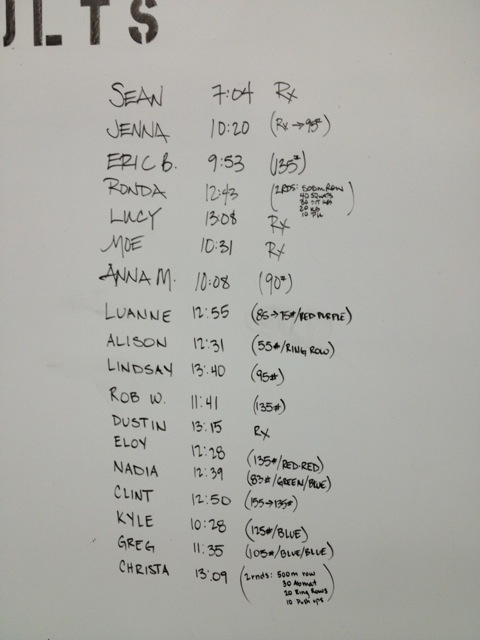 ULTS
SEAN 7:04 Rx
JENNA 10:20 (Rx → 95#)
ERIC B. 9:53 (135#)
RONDA 12:43 (2 RDS: 500m ROW
40 SQUATS
30 SIT UPS
20
10
LUCY 13:08 Rx
MOE 10:31 Rx
ANNA M. 10:08 (90#)
LUANNE 12:55 (85→75#/RED PURPLE)
ALISON 12:31 (55#/RING ROW)
LINDSAY 13:40 (95#)
ROB W. 11:41 (135#)
DUSTIN 13:15 Rx
ELOY 12:28 (135#/RED·RED)
NADIA 12:39 (83#/GREEN/BLUE)
CLINT 12:50 (155→135#)
KYLE 10:28 (125#/BLUE)
GREG 11:35 (105#/BLUE/BLUE)
CHRISTA 13:09 (2 rnds: 500m row
30 Abmat
20 Ring Rows
10 Push ups)